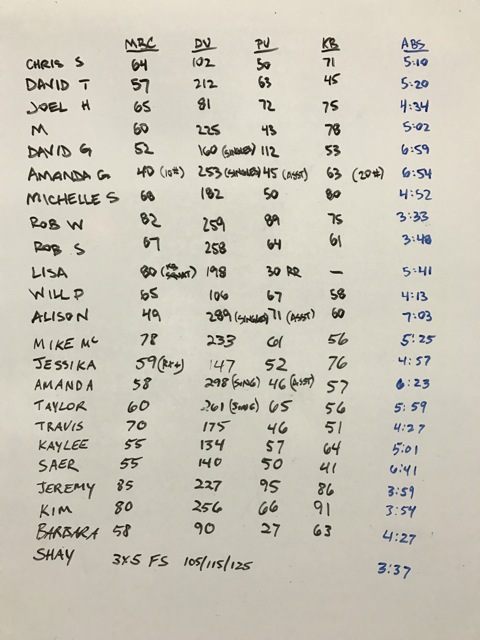 MBC DU PU KB ABS
CHRIS S 64 102 50 71 5:10
DAVID T 57 212 63 45 5:20
JOEL H 65 81 72 75 4:34
M 60 225 43 78 5:02
DAVID G 52 160 (SINGLES) 112 53 6:59
AMANDA G 40 (10#) 253 (SINGLES) 45 (ASST) 63 (20#) 6:54
MICHELLE S 68 182 50 80 4:52
ROB W 82 259 89 75 3:33
ROB S 67 258 64 61 3:48
LISA 80 (KB SQUAT) 198 30 RR — 5:41
WILL P 65 106 67 58 4:13
ALISON 49 289 (SINGLES) 71 (ASST) 60 7:03
MIKE MC 78 233 61 56 5:25
JESSIKA 59 (RX+) 147 52 76 4:57
AMANDA 58 298 (SING) 46 (ASST) 57 6:23
TAYLOR 60 261 (SING) 65 56 5:59
TRAVIS 70 175 46 51 4:27
KAYLEE 55 134 57 64 5:01
SAER 55 140 50 41 6:41
JEREMY 85 227 95 86 3:59
KIM 80 256 66 91 3:54
BARBARA 58 90 27 63 4:27
SHAY 3x5 FS 105/115/125 3:37